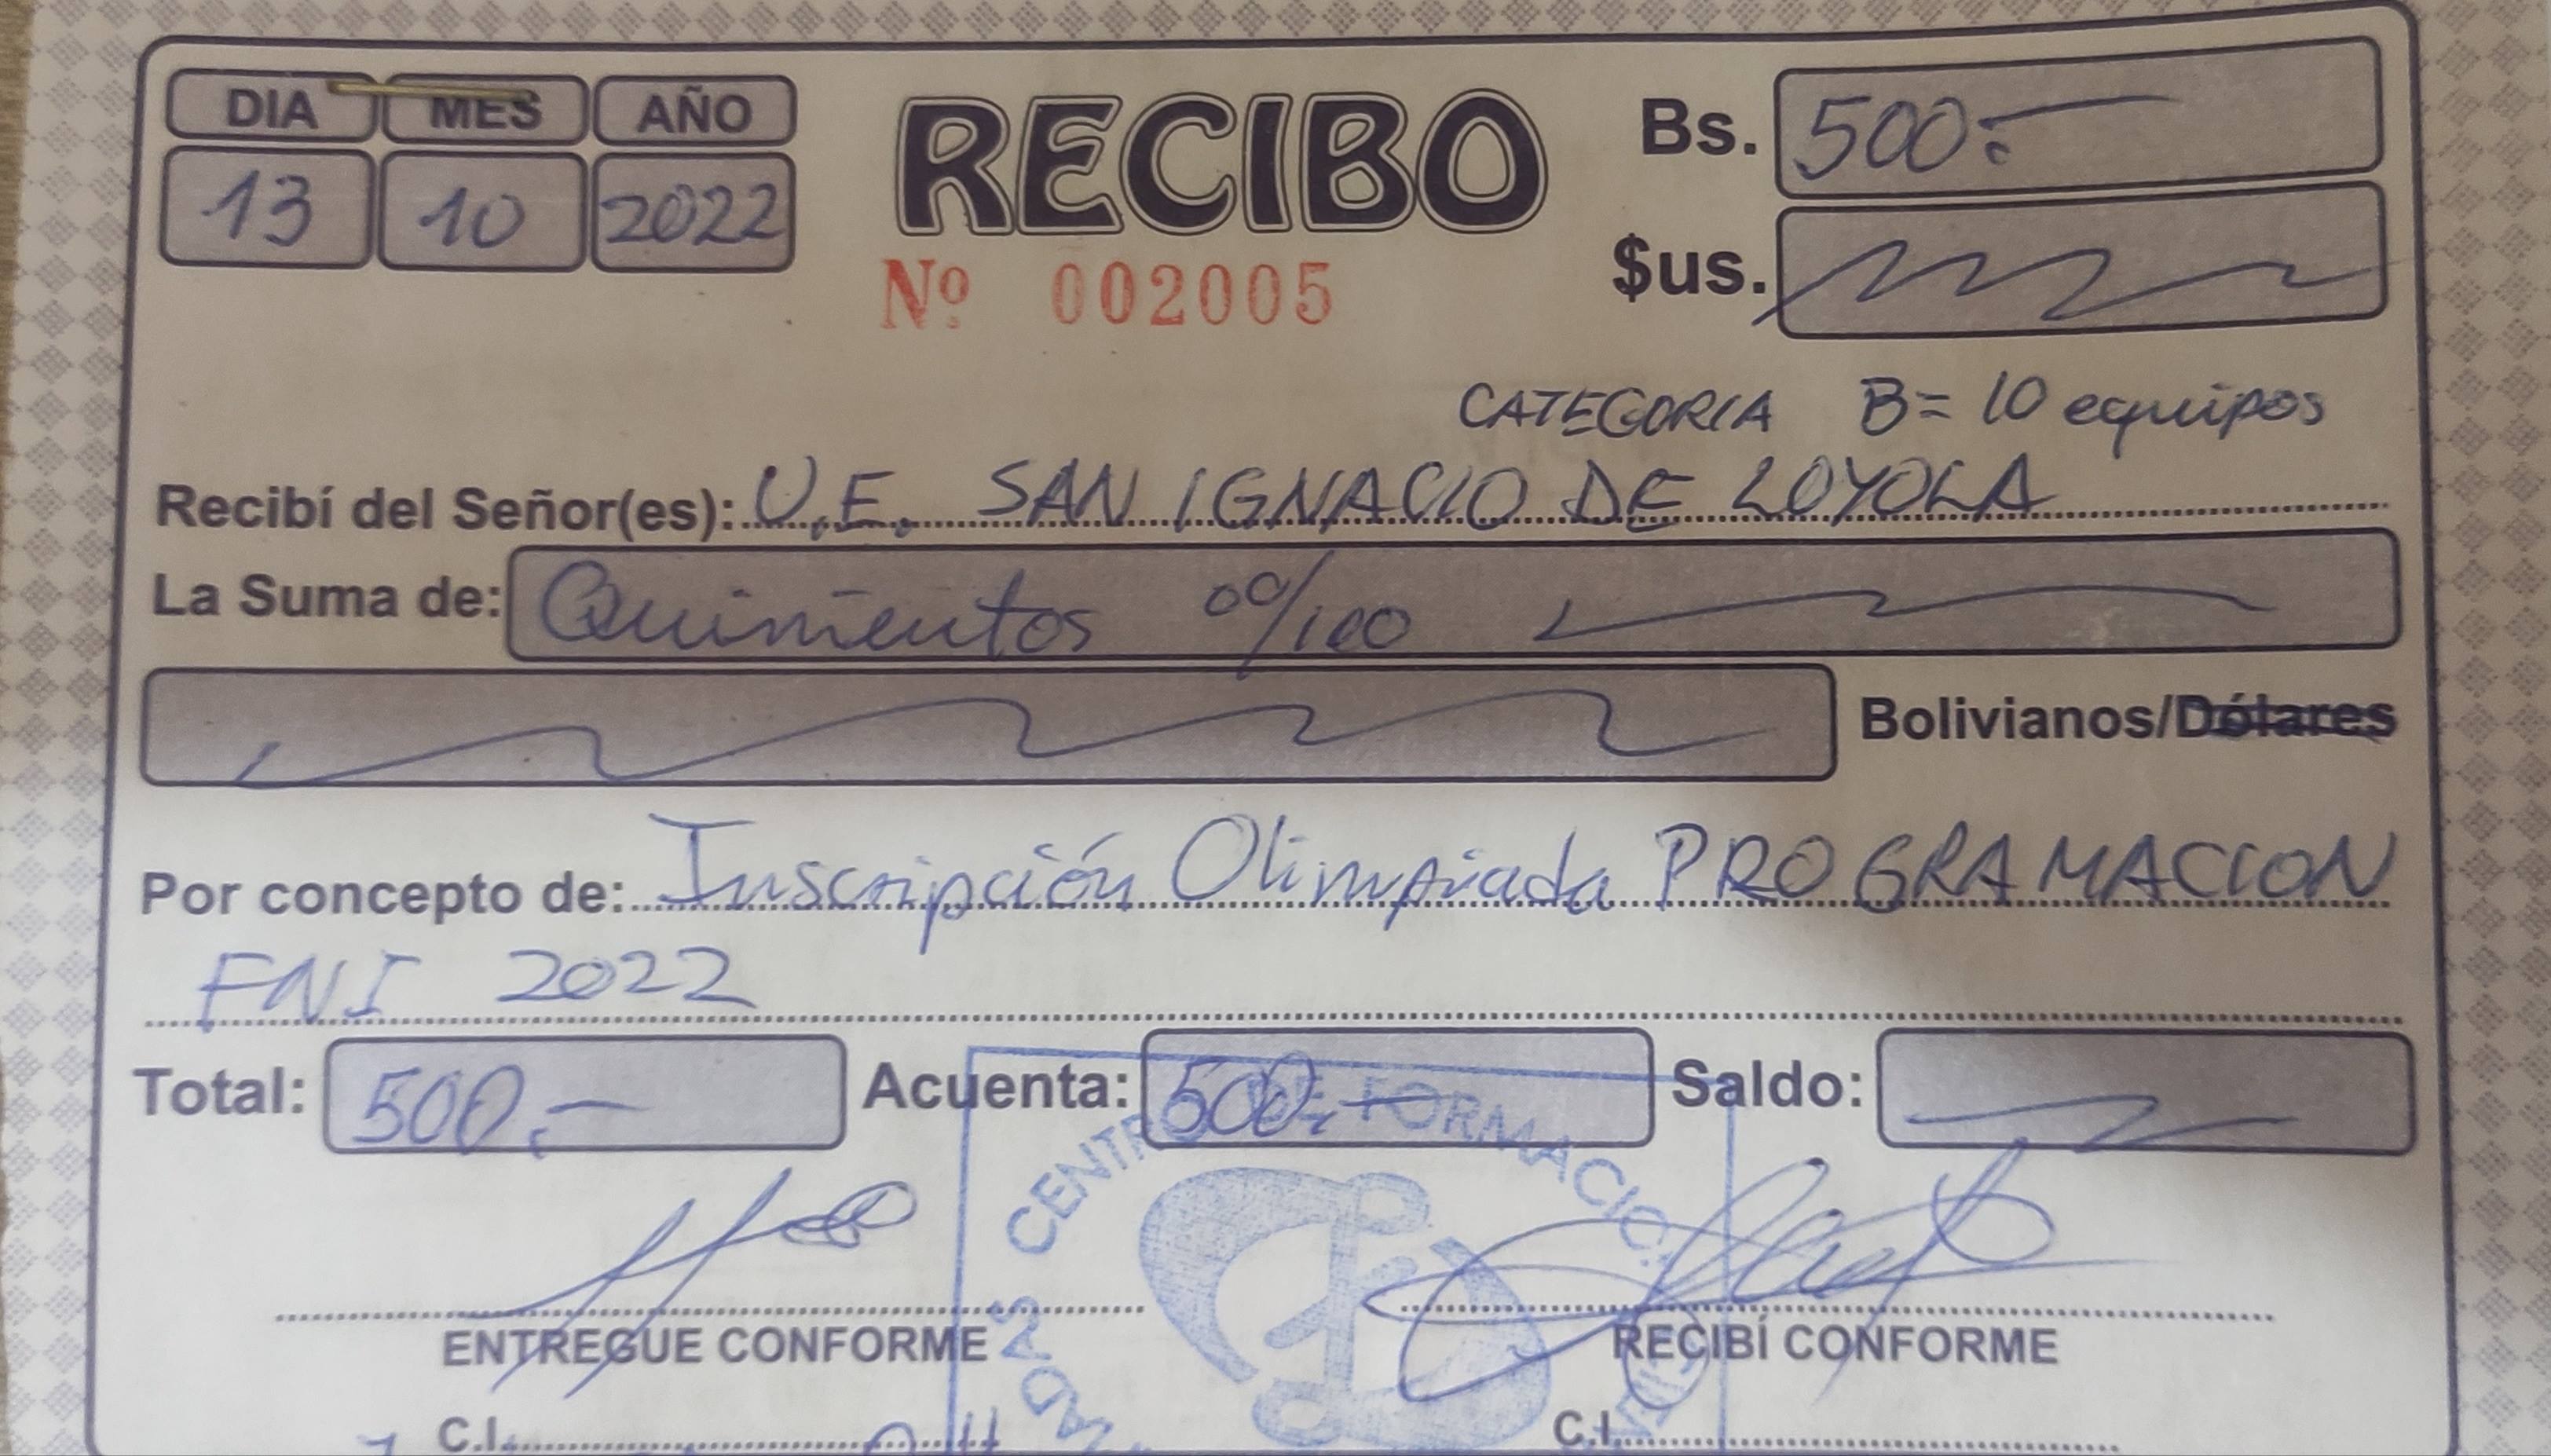 DIA MES AÑO
13 10 2022
RECIBO
Nº 002005
Bs. 500.-
$us.
CATEGORIA B= 10 equipos
Recibí del Señor(es): U.E. SAN IGNACIO DE LOYOLA
La Suma de: Quinientos 00/100
Bolivianos/Dólares
Por concepto de: Inscripción Olimpiada PROGRAMACION
FNI 2022
Total: 500.- Acuenta: 500.- Saldo:
CENTRO DE FORMACIO
ENTREGUE CONFORME RECIBÍ CONFORME
C.I. C.I.